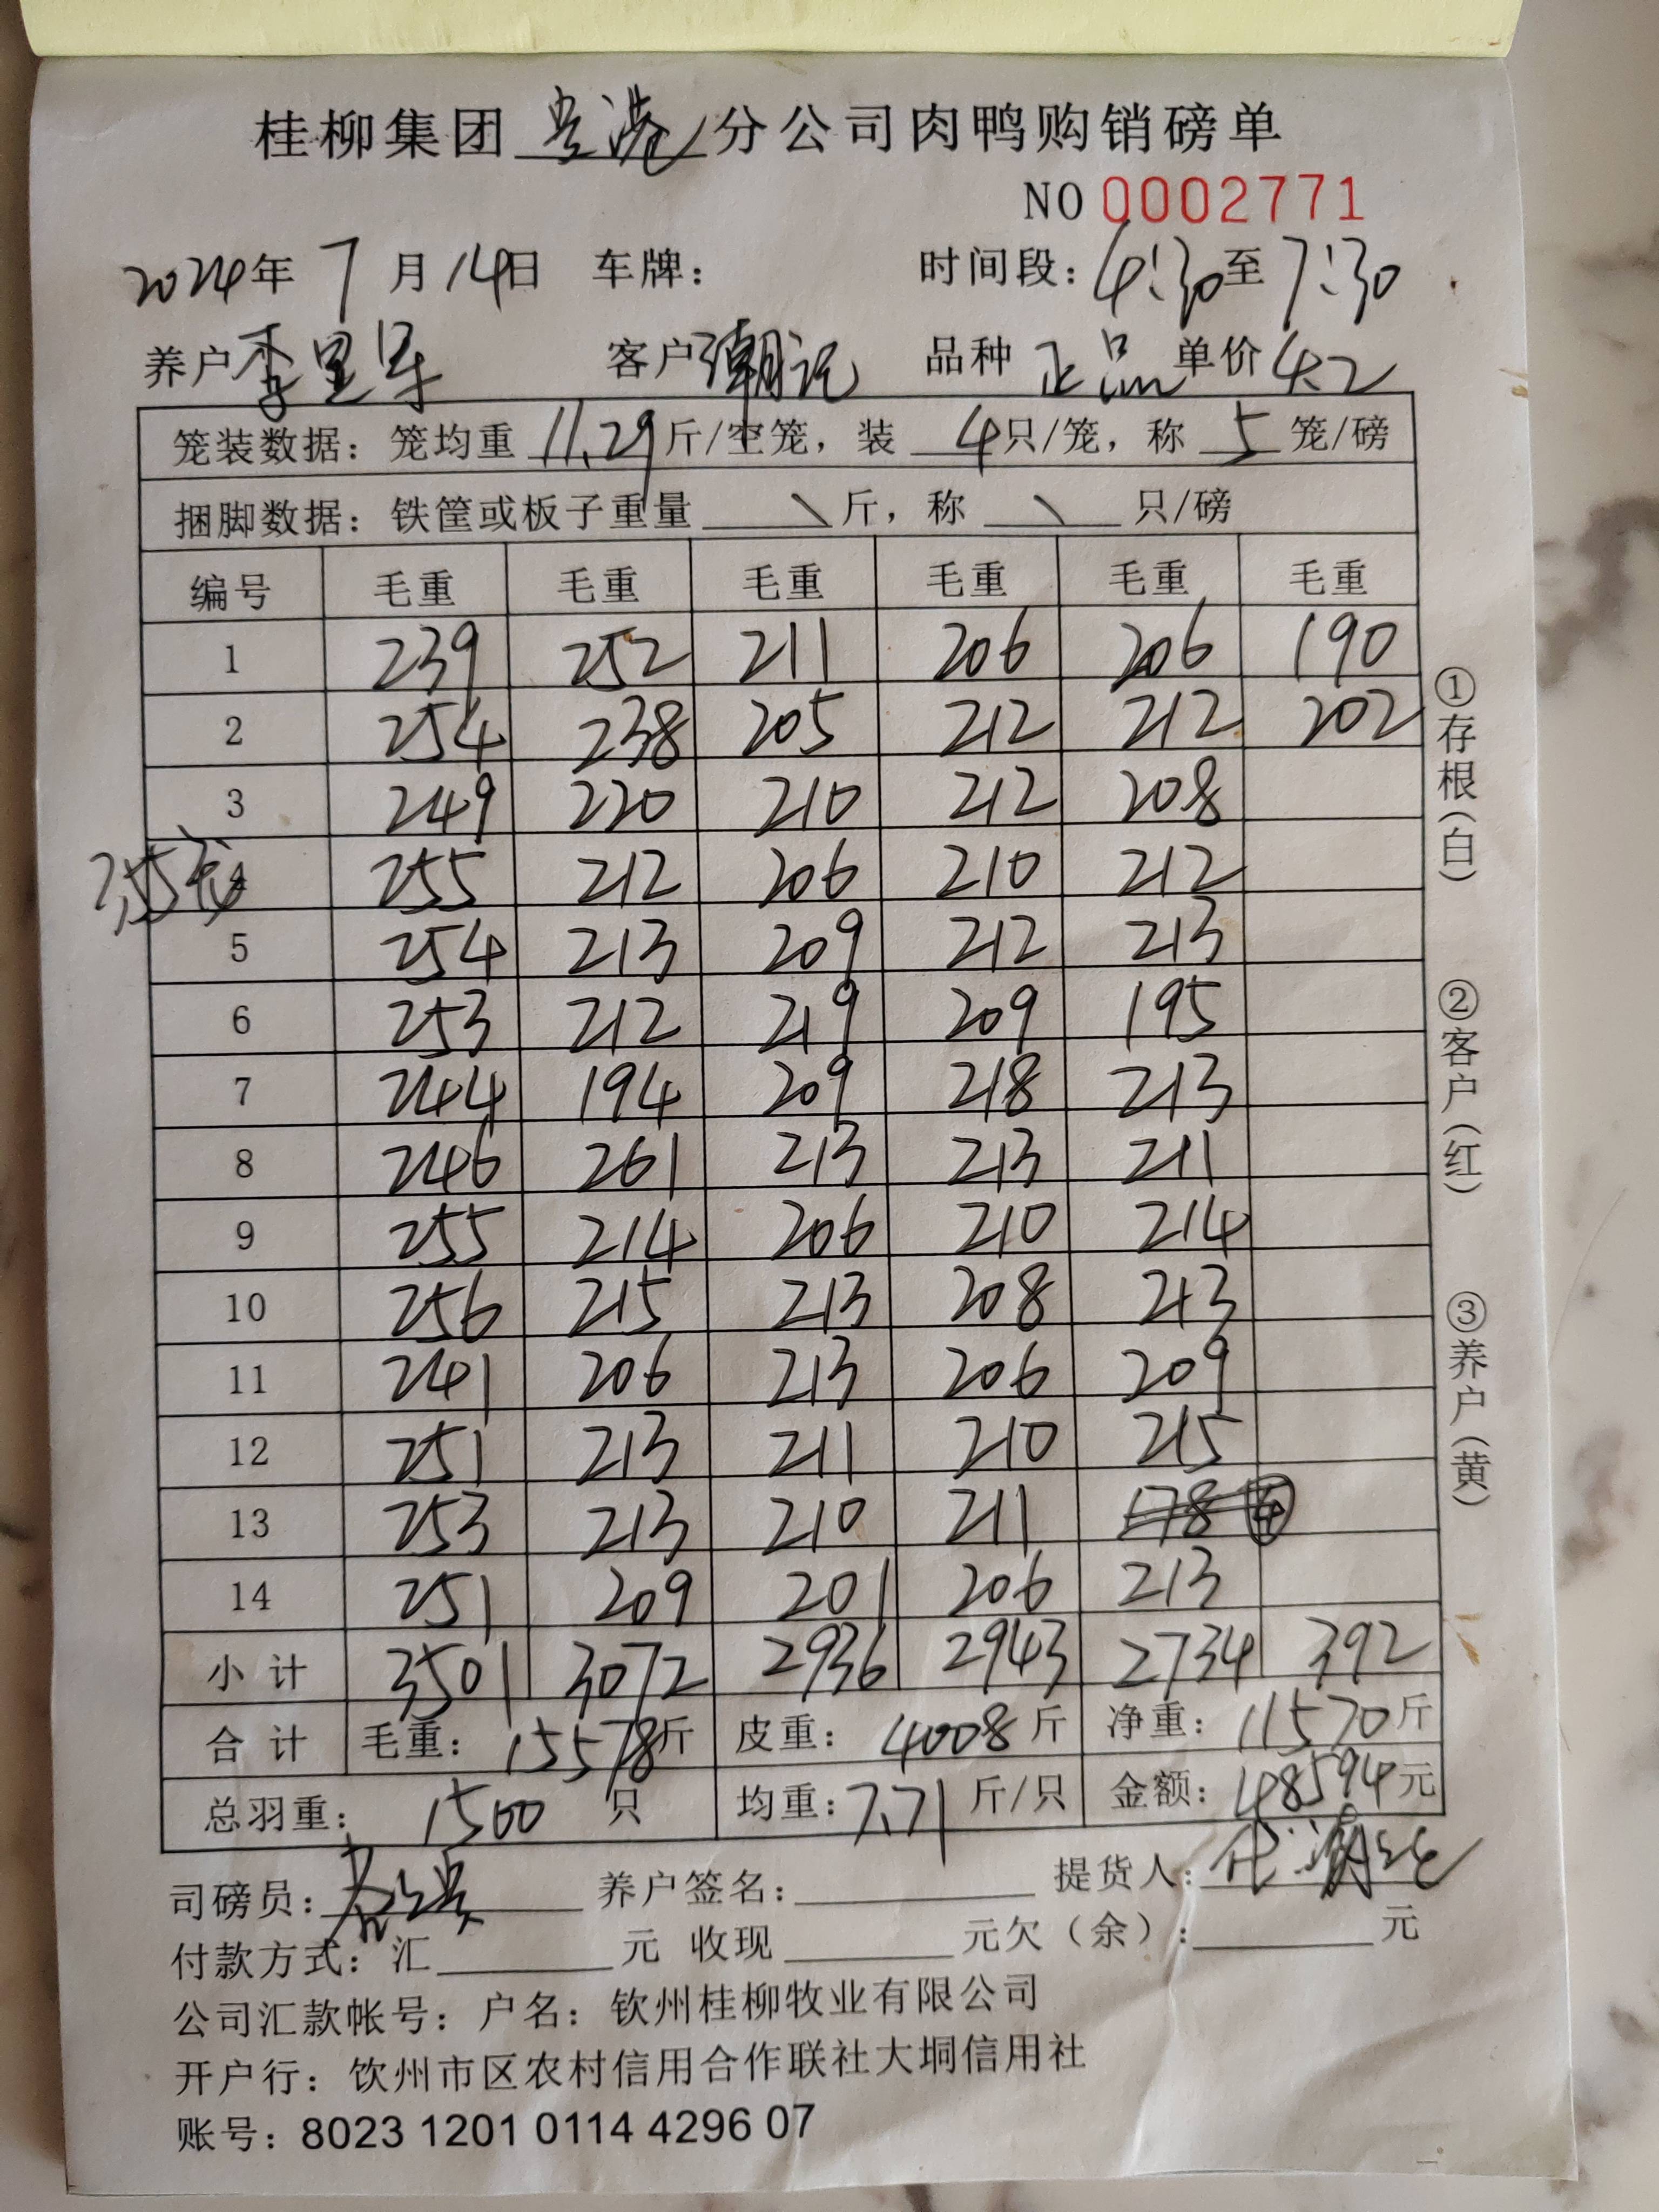 桂柳集团贵港分公司肉鸭购销磅单
NO 0002771
2024年 7 月 14日 车牌： 时间段：4:30至7:30
养户 李里 客户 潮记 品种 正品 单价 4.2
笼装数据：笼均重 11.29 斤/空笼，装 4 只/笼，称 5 笼/磅
捆脚数据：铁筐或板子重量 \ 斤，称 \ 只/磅
编号 毛重 毛重 毛重 毛重 毛重 毛重
1 239 252 211 206 206 190
2 254 238 205 212 212 202
3 249 220 210 212 208
355 4 255 212 206 210 212
5 254 213 209 212 213
6 253 212 219 209 195
7 244 194 209 218 213
8 246 261 213 213 211
9 255 214 206 210 214
10 256 215 213 208 213
11 241 206 213 206 209
12 251 213 211 210 215
13 253 213 210 211 178 ④
14 251 209 201 206 213
小计 3501 3072 2936 2943 2734 392
合计 毛重：15578斤 皮重：4008斤 净重：11570斤
总羽重：1500 只 均重：7.71 斤/只 金额：48594元
司磅员： 养户签名： 提货人：
付款方式：汇 元 收现 元欠（余）： 元
公司汇款帐号：户名：钦州桂柳牧业有限公司
开户行：钦州市区农村信用合作联社大垌信用社
账号：8023 1201 0114 4296 07
①存根（白）
②客户（红）
③养户（黄）